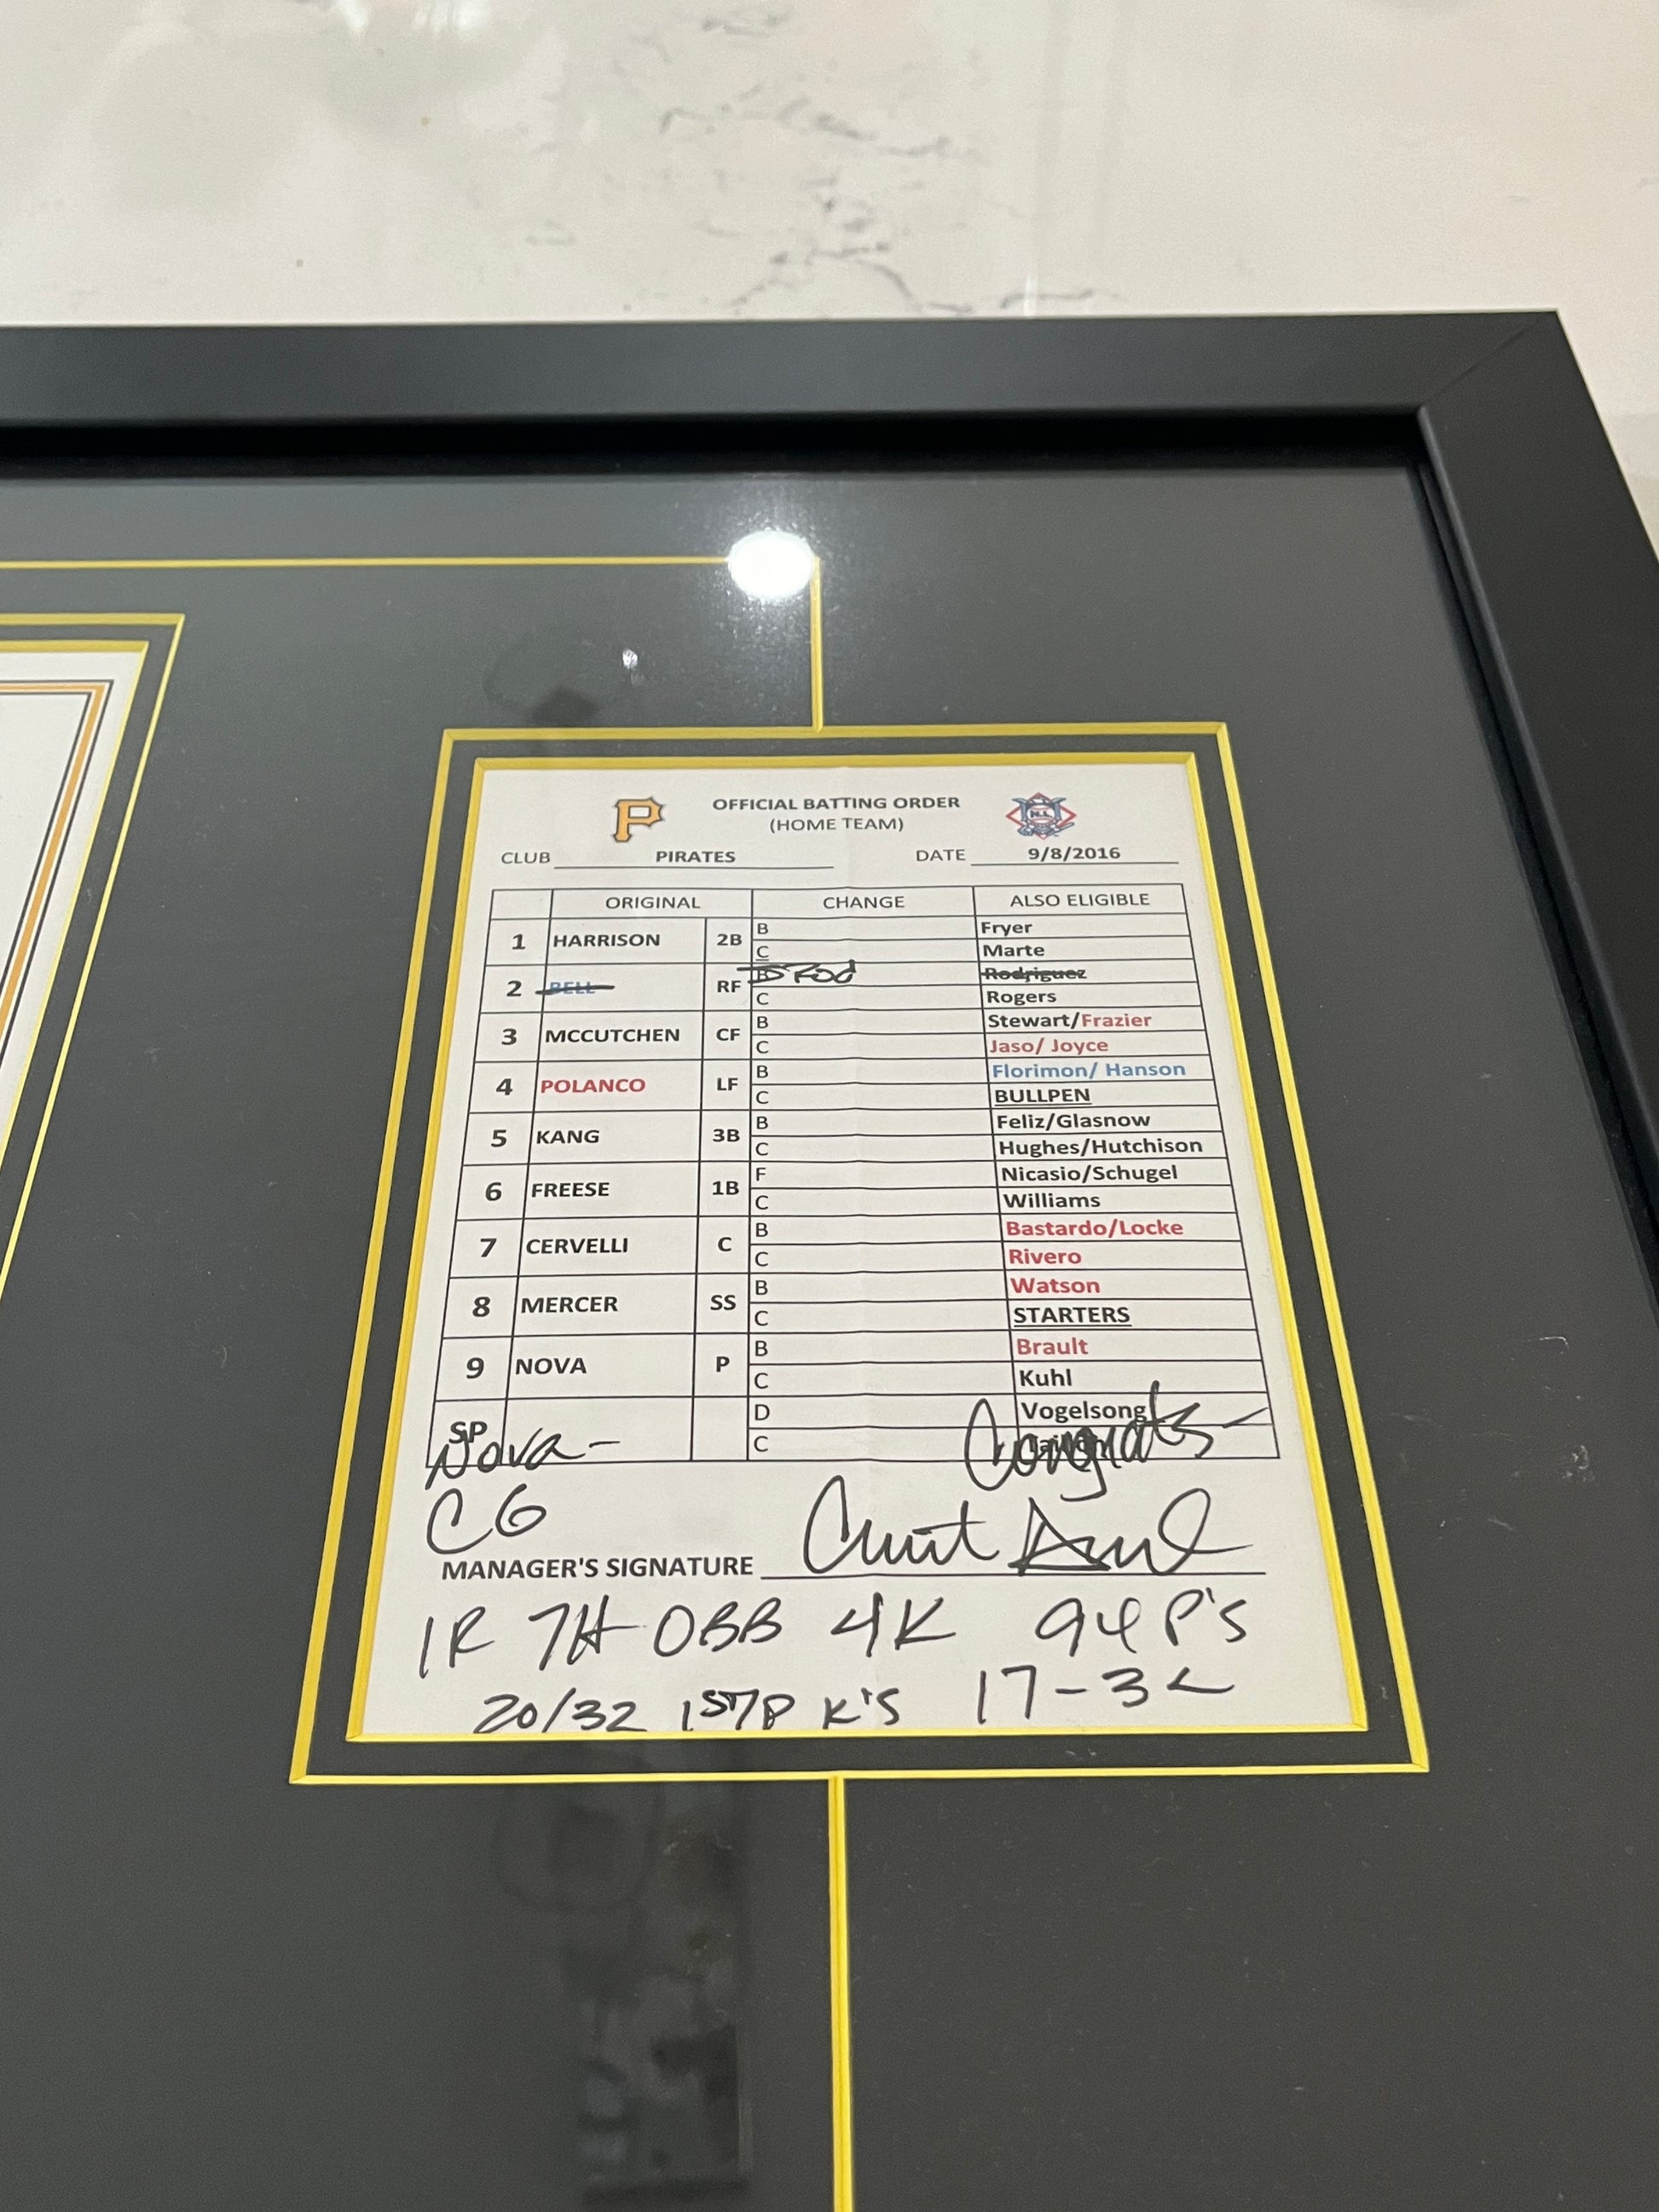 P OFFICIAL BATTING ORDER N.L.
(HOME TEAM)
CLUB PIRATES DATE 9/8/2016
ORIGINAL CHANGE ALSO ELIGIBLE
1 HARRISON 2B B Fryer
C Marte
2 BELL RF B S Rod Rodriguez
C Rogers
3 MCCUTCHEN CF B Stewart/Frazier
C Jaso/ Joyce
4 POLANCO LF B Florimon/ Hanson
C BULLPEN
5 KANG 3B B Feliz/Glasnow
C Hughes/Hutchison
6 FREESE 1B F Nicasio/Schugel
C Williams
7 CERVELLI C B Bastardo/Locke
C Rivero
8 MERCER SS B Watson
C STARTERS
9 NOVA P B Brault
C Kuhl
SP D Vogelsong
C
Nova - Congrats -
CG
MANAGER'S SIGNATURE
1R 7H 0BB 4K 94 P's
20/32 1STP K'S 17-3 L